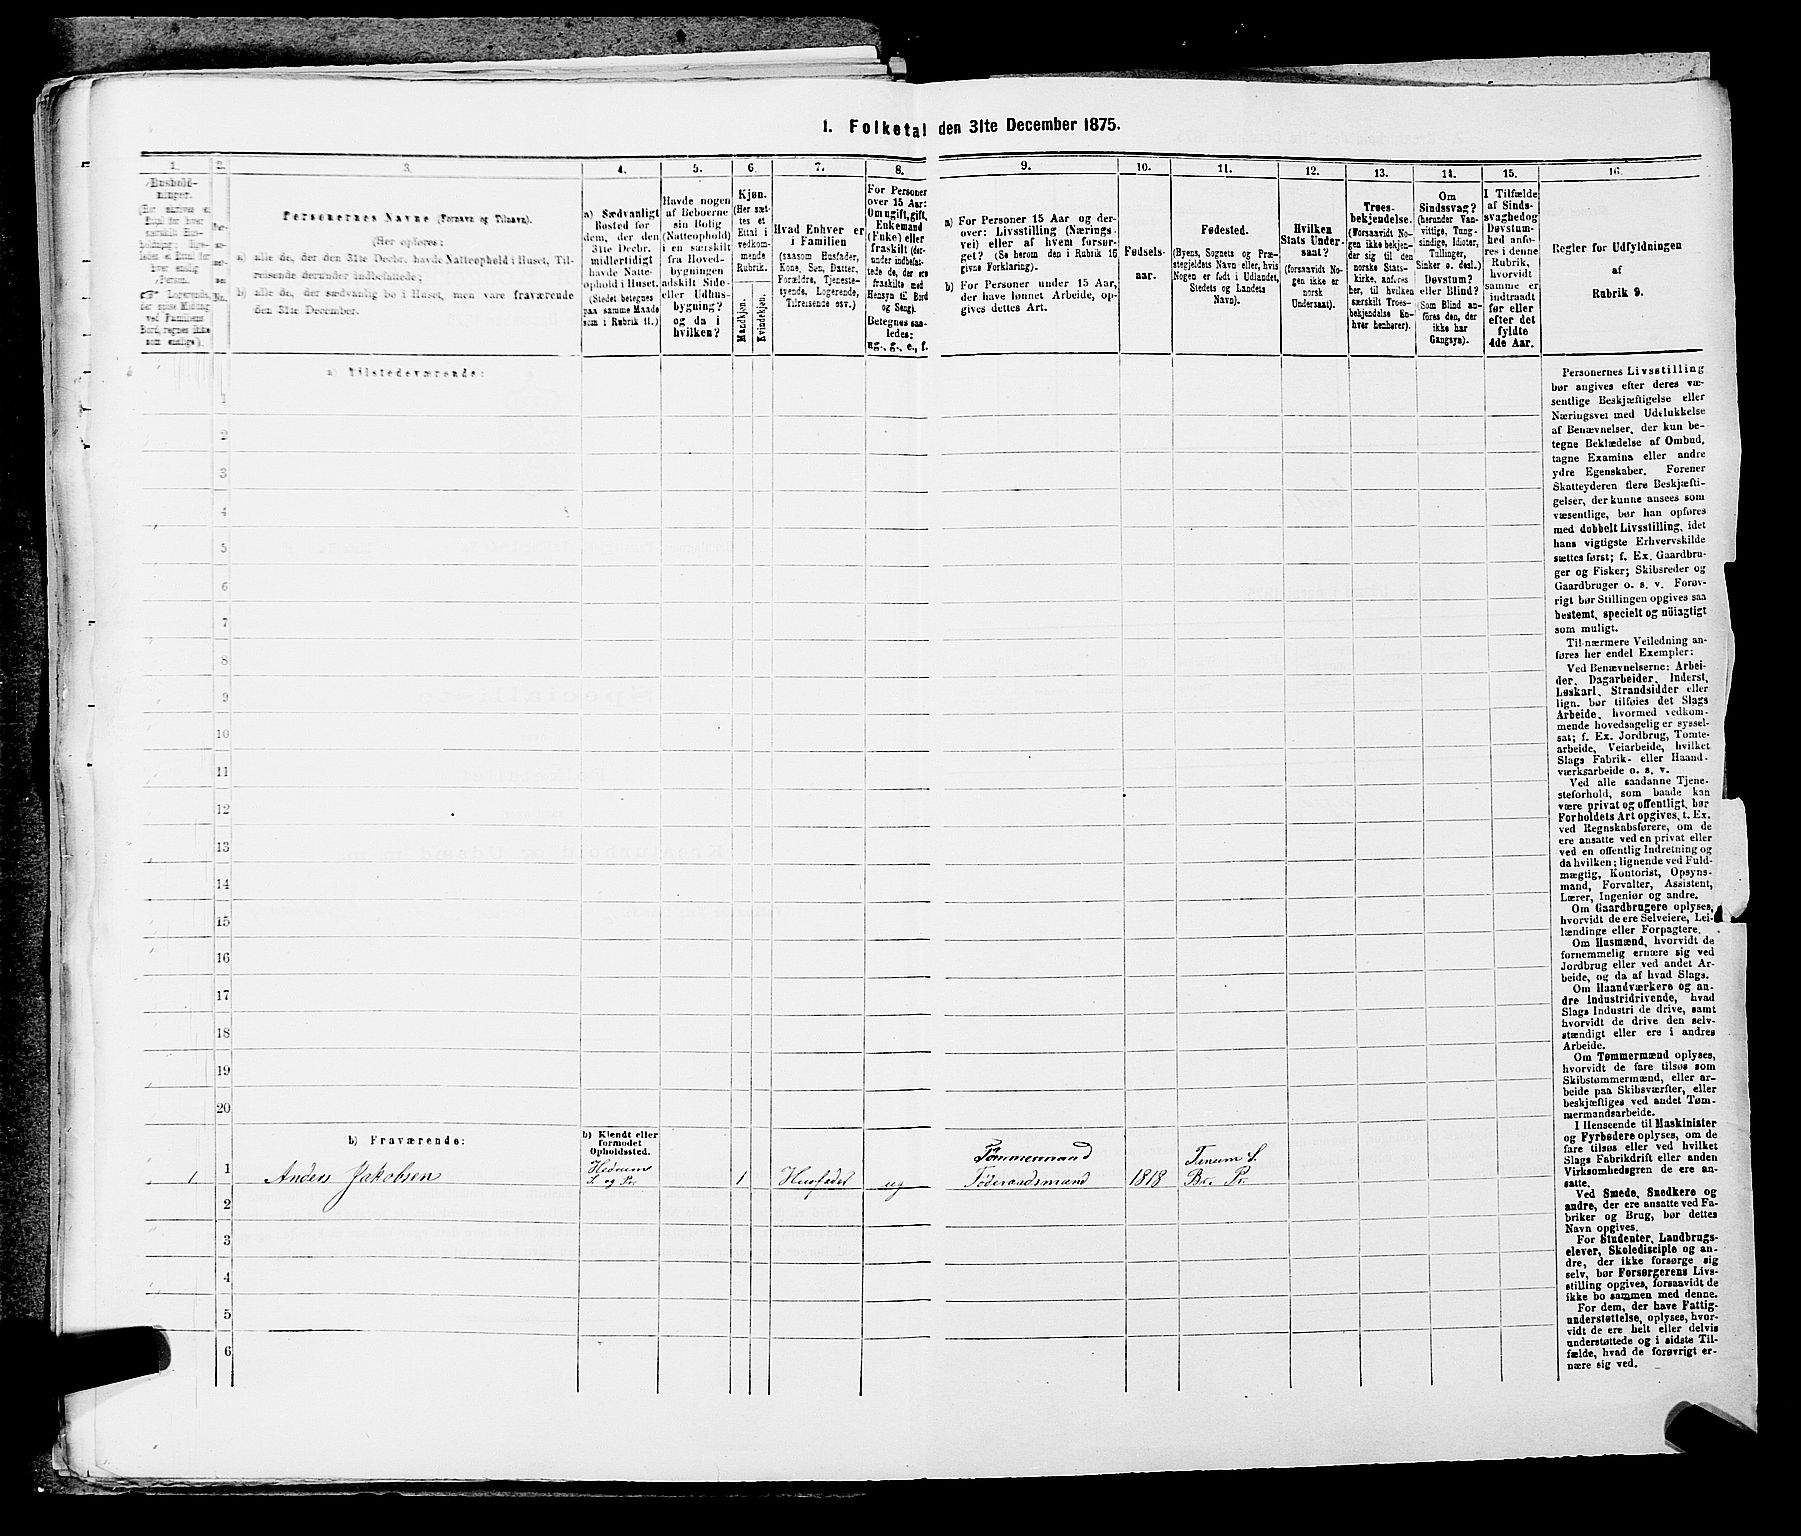 1. Folketal den 31te December 1875.
1.
2.
3.
4.
5.
6.
7.
8.
9.
10.
11.
12.
13.
14.
15.
16.
Hushold-
ninger.
(Her skrives et
Ettal for hver
særskilt Hus-
holdning; lige-
ledes et Ettal for
hver enslig
Person.
☞ Logerende,
der spise Middag
ved Familiens
Bord, regnes ikke
som enslige).
Personernes Navne (Fornavn og Tilnavn).
(Her opføres:
a) alle de, der den 31te Decbr. havde Natteophold i Huset, Til-
reisende derunder indbefattede;
b) alle de, der sædvanlig bo i Huset, men vare fraværende
den 31te December.
a) Sædvanligt
Bosted for
dem, der den
31te Decbr.
midlertidigt
havde Natte-
ophold i Huset.
(Stedet betegnes
paa samme Maade
som i Rubrik 11.)
Havde nogen
af Beboerne
sin Bolig
(Natteophold)
i en særskilt
fra Hoved-
bygningen
adskilt Side-
eller Udhus-
bygning?
og da i
hvilken?
Kjøn.
(Her sæt-
tes et
Ettal i
vedkom-
mende
Rubrik.
Mandkjøn.
Kvindekjøn.
Hvad Enhver er
i Familien
(saasom Husfader,
Kone, Søn, Datter,
Forældre, Tjeneste-
tyende, Logerende,
Tilreisende osv.)
For Personer
over 15 Aar:
Om ugift, gift,
Enkemand
(Enke) eller
fraskilt (der-
under indbefat-
tede de, der ere
fraskilte med
Hensyn til Bord
og Seng).
Betegnes saa-
ledes:
ug., g., e., f.
a) For Personer 15 Aar og der-
over: Livsstilling (Nærings-
vei) eller af hvem forsør-
get? (Se herom den i Rubrik 16
givne Forklaring).
b) For Personer under 15 Aar,
der have lønnet Arbeide, op-
gives dettes Art.
Fødsels-
aar.
Fødested.
(Byens, Sognets og Præ-
stegjeldets Navn eller, hvis
Nogen er født i Udlandet,
Stedets og Landets
Navn).
Hvilken
Stats Under-
saat?
(forsaavidt No-
gen ikke er
norsk
Undersaat).
Troes-
bekjendelse.
(Forsaavidt No-
gen ikke bekjen-
der sig til den
norske Stats-
kirke, anføres
her, til hvilken
særskilt Troes-
bekjendelse En-
hver henhører).
Om
Sindssvag?
(herunder Van-
vittige, Tung-
sindige, Idioter,
Tullinger,
Sinker o. desl.)
Døvstum?
eller Blind?
(Som Blind an-
føres den, der
ikke har
Gangsyn).
I Tilfælde
af Sinds-
svaghed og
Døvstum-
hed anfø-
res i denne
Rubrik,
hvorvidt
samme er
indtraadt
før eller
efter det
fyldte
4de Aar.
Regler for Udfyldningen
af
Rubrik 9.
a) Tilstedeværende:
1
2
3
4
5
6
7
8
9
10
11
12
13
14
15
16
17
18
19
20
b) Fraværende:
b) Kjendt eller
formodet
Opholdssted.
1 1 Anders Jakobsen Hedrums S. og Pr. 1 Husfader ug Tømmermand Föderaadsmand 1818 Br. Pr.
2
3
4
5
6
Personernes Livsstilling
bør angives efter deres væ-
sentlige Beskjæftigelse eller
Næringsvei med Udelukkelse
af Benævnelser, der kun be-
tegne Beklædelse af Ombud,
tagne Examina eller andre
ydre Egenskaber. Forener
Skatteyderen flere Beskjæfti-
gelser, der kunne ansees som
væsentlige, bør han opføres
med dobbelt Livsstilling, idet
hans vigtigste Erhvervskilde
sættes først; f. Ex. Gaardbru-
ger og Fisker; Skibsreder og
Gaardbruger o. s. v. Forøv-
rigt bør Stillingen opgives saa
bestemt, specielt og nöiagtigt
som muligt.
Til nærmere Veiledning an-
føres her endel Exempler:
Ved Benævnelserne: Arbei-
der, Dagarbeider, Inderst,
Løskarl, Strandsidder eller
lign. bør tilføies det Slags
Arbeide, hvormed vedkom-
mende hovedsagelig er syssel-
sat; f. Ex. Jordbrug, Tomte-
arbeide, Veiarbeide, hvilket
Slags Fabrik- eller Haand-
værksarbeide o. s. v.
Ved alle saadanne Tjene-
steforhold, som baade kan
være privat og offentligt, bør
Forholdets Art opgives, t. Ex.
ved Regnskabsførere, om de
ere ansatte ved en privat eller
ved en offentlig Indretning og
da hvilken; lignende ved Fuld-
mægtig, Kontorist, Opsyns-
mand, Forvalter, Assistent,
Lærer, Ingeniør og andre.
Om Gaardbrugere oplyses,
hvorvidt de ere Selveiere, Lei-
lændinge eller Forpagtere.
Om Husmænd, hvorvidt de
fornemmelig ernære sig ved
Jordbrug eller ved andet Ar-
beide, og da af hvad Slags.
Om Haandværkere og an-
dre Industridrivende, hvad
Slags Industri de drive, samt
hvorvidt de drive den selv-
stændigt eller ere i andres
Arbeide.
Om Tømmermænd oplyses,
hvorvidt de fare tilsøs som
Skibstømmermænd, eller ar-
beide paa Skibsværfter, eller
beskjæftiges ved andet Tøm-
mermandsarbeide.
I Henseende til Maskinister
og Fyrbødere oplyses, om de
fare tilsøs eller ved hvilket
Slags Fabrikdrift eller anden
Virksomhedsgren de ere an-
satte.
Ved Smede, Snedkere og
andre, der ere ansatte ved Fa-
briker og Brug, bør dettes
Navn opgives.
For Studenter, Landbrugs-
elever, Skoledisciple og an-
dre, der ikke forsørge sig
selv, bør Forsørgerens Livs-
stilling opgives, forsaavidt de
ikke bo sammen med denne.
For dem, der have Fattig-
understøttelse, oplyses, hvor-
vidt de ere helt eller delvis
understøttede og i sidste Til-
fælde, hvad de forøvrigt er-
nære sig ved.